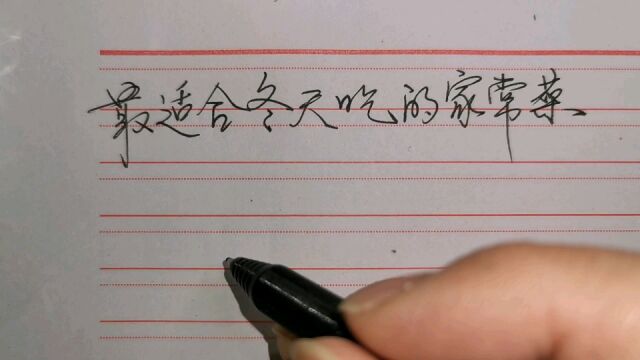 最适合冬天吃的家常菜